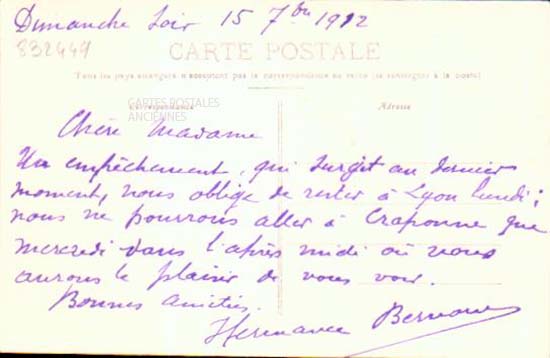 Dimanche Soir 15 7bre 1912
832449
CARTE POSTALE
Tous les pays étrangers n'acceptent pas la correspondance au recto (se renseigner à la poste)
CARTES POSTALES
ANCIENNES
Correspondance
Adresse
Chère Madame
Un empêchement, qui surgit au dernier
moment, nous oblige de rester à Lyon lundi;
nous ne pourrons aller à Craponne que
mercredi dans l'après midi où nous
aurons le plaisir de vous voir.
Bonnes amitiés.
Hermance